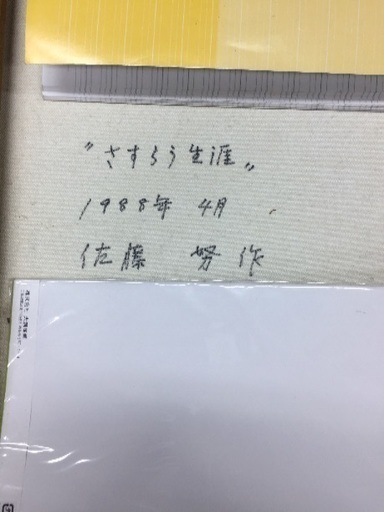 "さすらう生涯"
1988年 4月
佐藤 努 作